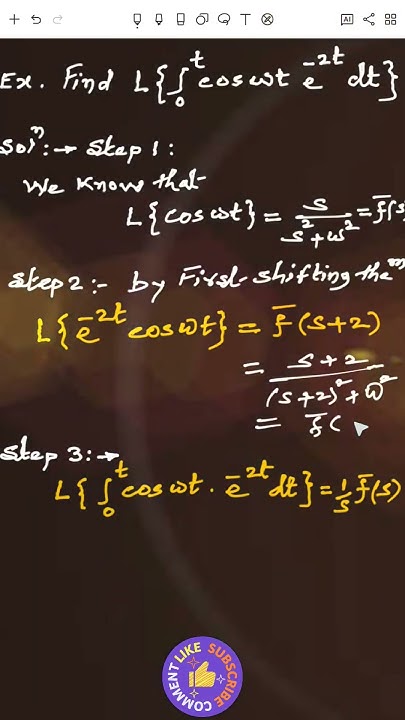 Ex. Find L{∫₀ᵗ cos ωt e⁻²ᵗ dt}
Solⁿ:→ Step 1:
We Know that
L{cos ωt} = s/(s²+ω²) = f̄(s
Step 2:- by First shifting theᵐ
L{e⁻²ᵗ cos ωt} = f̄(s+2)
= (s+2)/((s+2)²+ω²)
= f̄(
Step 3:→
L{∫₀ᵗ cos ωt · e⁻²ᵗ dt} = 1/s f̄(s)
LIKE SUBSCRIBE COMMENT